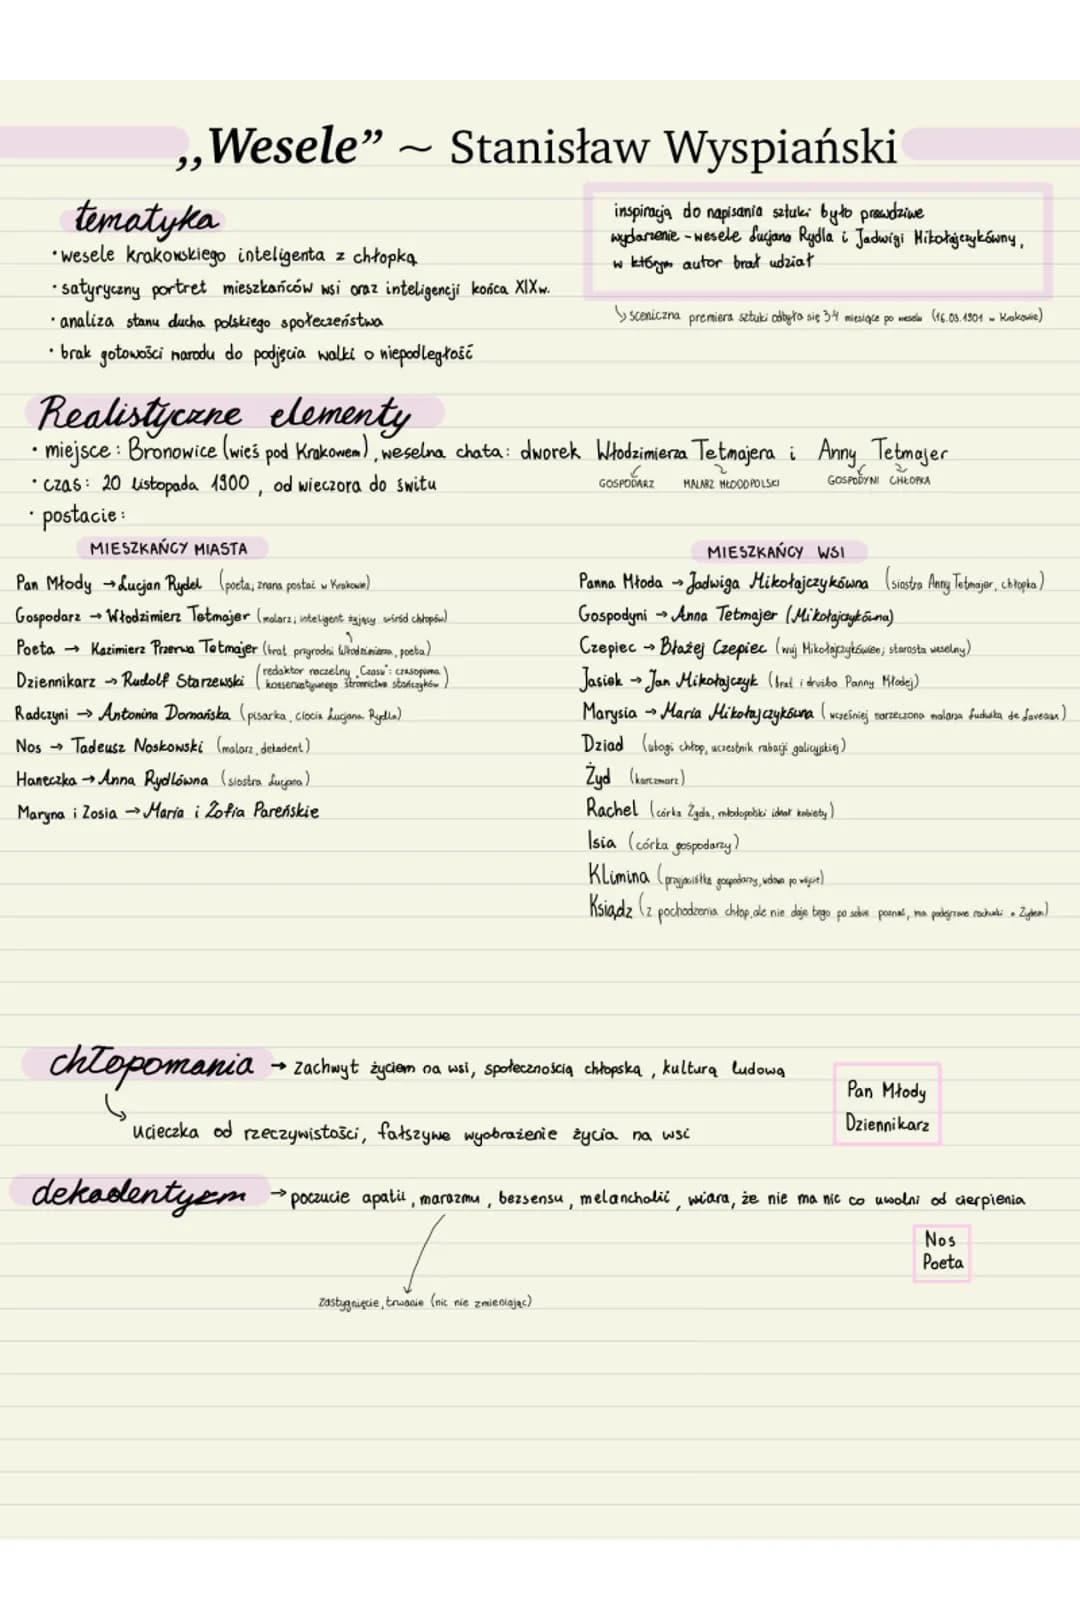 „Wesele” ~ Stanisław Wyspiański
tematyka
• wesele krakowskiego inteligenta z chłopką
• satyryczny portret mieszkańców wsi oraz inteligencji końca XIXw.
• analiza stanu ducha polskiego społeczeństwa
• brak gotowości narodu do podjęcia walki o niepodległość
inspiracją do napisania sztuki było prawdziwe
wydarzenie - wesele Lucjana Rydla i Jadwigi Mikołajczykówny,
w którym autor brał udział
↳ sceniczna premiera sztuki odbyła się 34 miesiące po weselu (16.03.1901 w Krakowie)
Realistyczne elementy
• miejsce: Bronowice (wieś pod Krakowem), weselna chata: dworek Włodzimierza Tetmajera i Anny Tetmajer
GOSPODARZ MALARZ MŁODOPOLSKI GOSPODYNI CHŁOPKA
• czas: 20 listopada 1900, od wieczora do świtu
• postacie:
MIESZKAŃCY MIASTA
Pan Młody → Lucjan Rydel (poeta, znana postać w Krakowie)
Gospodarz → Włodzimierz Tetmajer (malarz; inteligent żyjący wśród chłopów)
Poeta → Kazimierz Przerwa Tetmajer (brat przyrodni Włodzimierza, poeta)
Dziennikarz → Rudolf Starzewski (redaktor naczelny „Czasu": czasopisma
konserwatywnego stronnictwa stańczyków)
Radczyni → Antonina Domańska (pisarka, ciocia Lucjana Rydla)
Nos → Tadeusz Noskowski (malarz, dekadent)
Haneczka → Anna Rydlówna (siostra Lucjana)
Maryna i Zosia → Maria i Zofia Pareńskie
MIESZKAŃCY WSI
Panna Młoda → Jadwiga Mikołajczykówna (siostra Anny Tetmajer, chłopka)
Gospodyni → Anna Tetmajer (Mikołajczykówna)
Czepiec → Błażej Czepiec (wuj Mikołajczykówien; starosta weselny)
Jasiek → Jan Mikołajczyk (brat i drużba Panny Młodej)
Marysia → Maria Mikołajczykówna (wcześniej narzeczona malarza Ludwika de Laveaux)
Dziad (ubogi chłop, uczestnik rabacji galicyjskiej)
Żyd (karczmarz)
Rachel (córka Żyda, młodopolski ideał kobiety)
Isia (córka gospodarzy)
Klimina (przyjaciółka gospodarzy, wdowa po wójcie)
Ksiądz (z pochodzenia chłop, ale nie daje tego po sobie poznać, ma podejrzane rachunki z Żydem)
chłopomania → zachwyt życiem na wsi, społecznością chłopską, kulturą ludową
↳ ucieczka od rzeczywistości, fałszywe wyobrażenie życia na wsi
Pan Młody
Dziennikarz
dekadentyzm → poczucie apatii, marazmu, bezsensu, melancholii, wiara, że nie ma nic co uwolni od cierpienia
Nos
Poeta
zastygnięcie, trwanie (nic nie zmieniając)